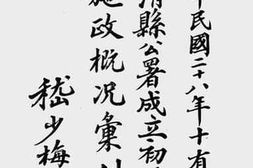 民國二十八年十有
清縣公署成立初
施政概况彙
嵇少梅